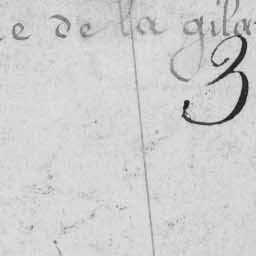 e de la gila
3